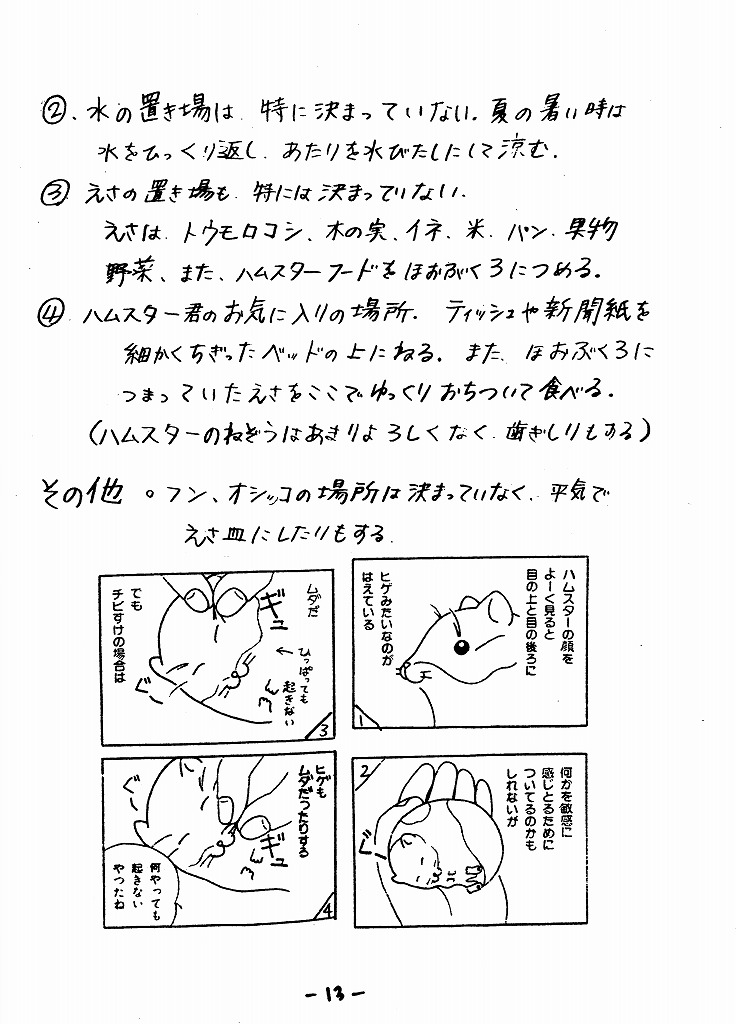 ②、水の置き場は、特に決まっていない。夏の暑い時は
水をひっくり返し、あたりを水びたしにして涼む。
③ えさの置き場も、特には決まっていない。
えさは、トウモロコシ、木の実、イネ、米、パン、果物
野菜、また、ハムスターフードをほおぶくろにつめる。
④ ハムスター君のお気に入りの場所。 ティッシュや新聞紙を
細かくちぎったベッドの上にねる。また、ほおぶくろに
つまっていたえさをここでゆっくりおちついて食べる。
（ハムスターのねぞうはあまりよろしくなく、歯ぎしりもする）
その他 。フン、オシッコの場所は決まっていなく、平気で
えさ皿にしたりもする。
ハムスターの顔を
よーく見ると
目の上と目の後ろに
ヒゲみたいなのが
はえている
1
何かを敏感に
感じとるために
ついてるのかも
しれないが
ぐー
2
でも
チビすけの場合は
ムダだ
ギュ
←ひっぱっても
起きない
ぐー
3
ヒゲも
ムダだったりする
ギュ
ぐー
何やっても
起きない
やつだね
4
-13-